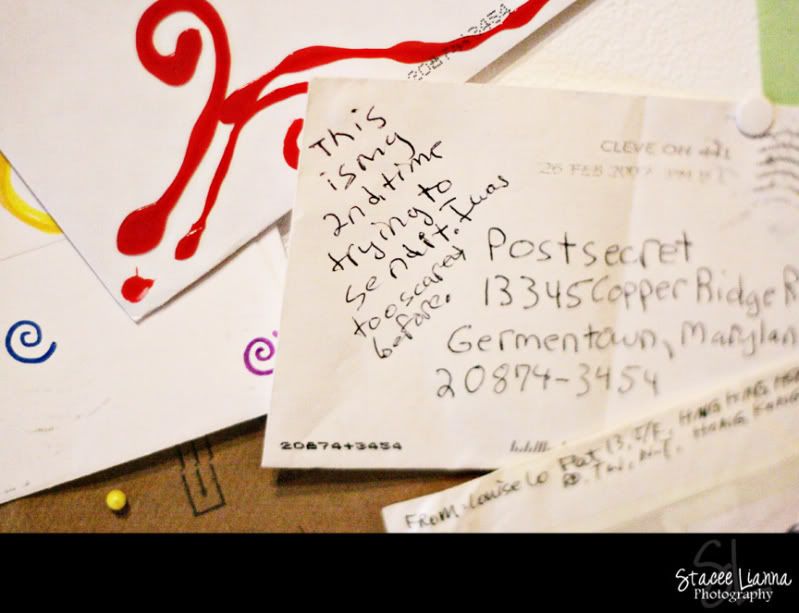 20874-3454
This
is my
2nd time
trying to
send it. I was
too scared
before.
CLEVE OH 441
26 FEB 2007 PM
Postsecret
13345 Copper Ridge R
Germentown, Marylan
20874-3454
20874+3454
FROM: Louise Lo
Stacee Lianna
Photography